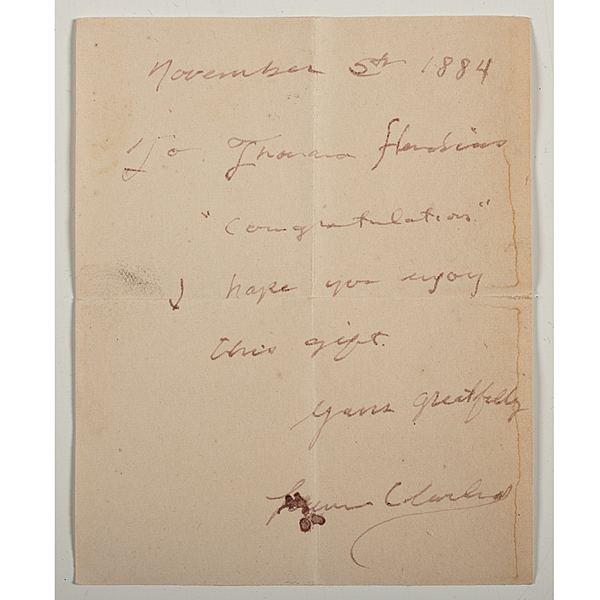 November 5th 1884
To Thomas
"Congratulation"
I hope you enjoy
this gift.
yours greatfully